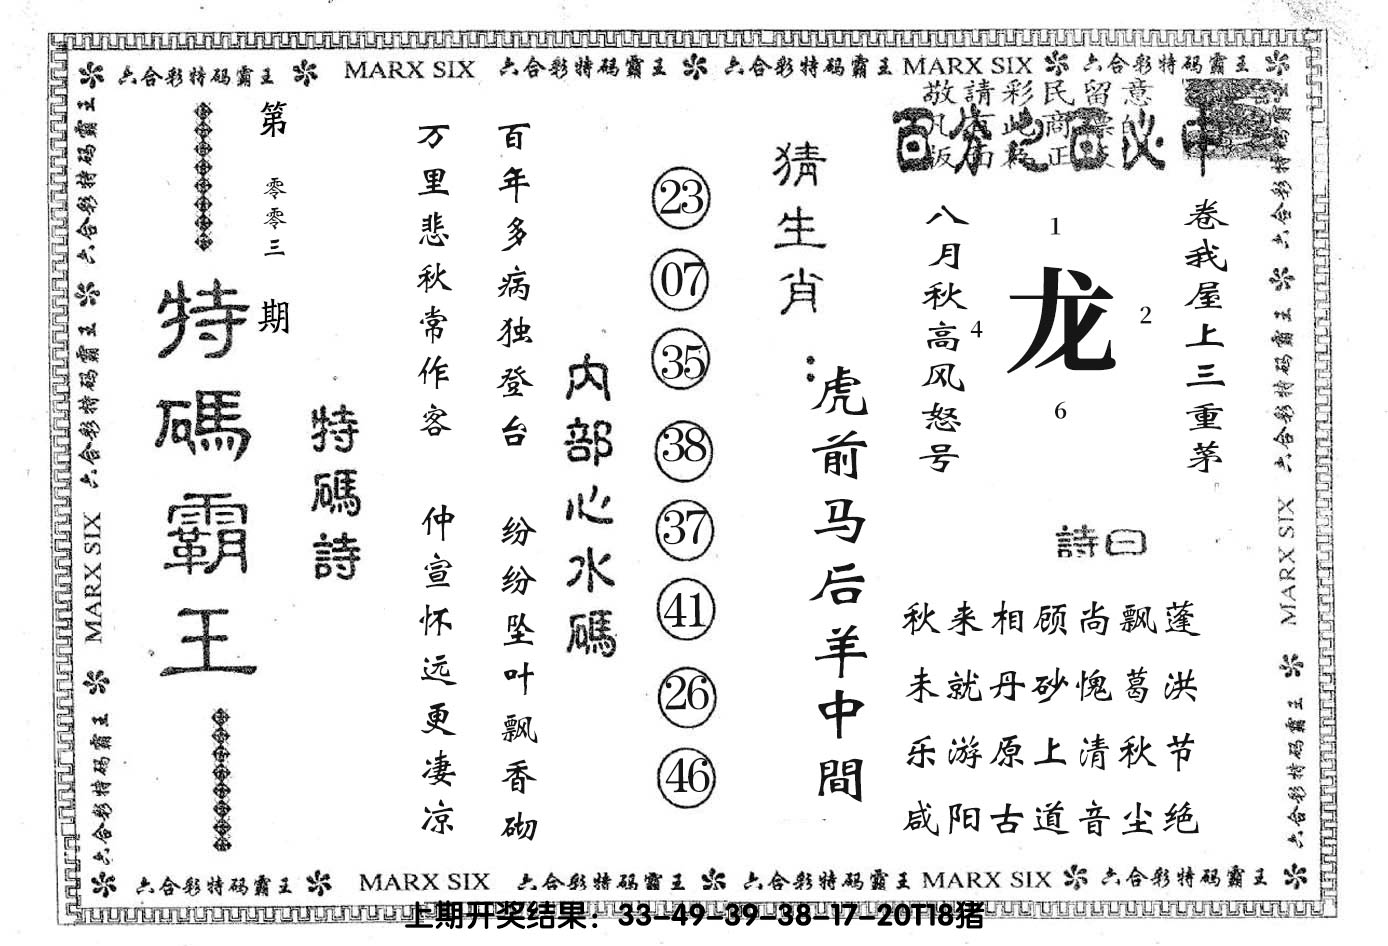 六合彩特码霸王 MARX SIX 六合彩特码霸王 六合彩特码霸王 MARX SIX 六合彩特码霸王
敬請彩民留意
百分之百必中
卷我屋上三重茅
八月秋高风怒号
1
龙
4
2
6
詩曰
秋来相顾尚飘蓬
未就丹砂愧葛洪
乐游原上清秋节
咸阳古道音尘绝
猜生肖:
虎前马后羊中間
23
07
35
38
37
41
26
46
内部心水碼
百年多病独登台
纷纷坠叶飘香砌
万里悲秋常作客
仲宣怀远更凄凉
特碼詩
第零零三期
特碼霸王
六合彩特码霸王 六合彩特码霸王 MARX SIX 六合彩特码霸王
六合彩特码霸王 六合彩特码霸王 MARX SIX 六合彩特码霸王
六合彩特码霸王 MARX SIX 六合彩特码霸王 六合彩特码霸王 MARX SIX 六合彩特码霸王
上期开奖结果：33-49-39-38-17-20T18猪